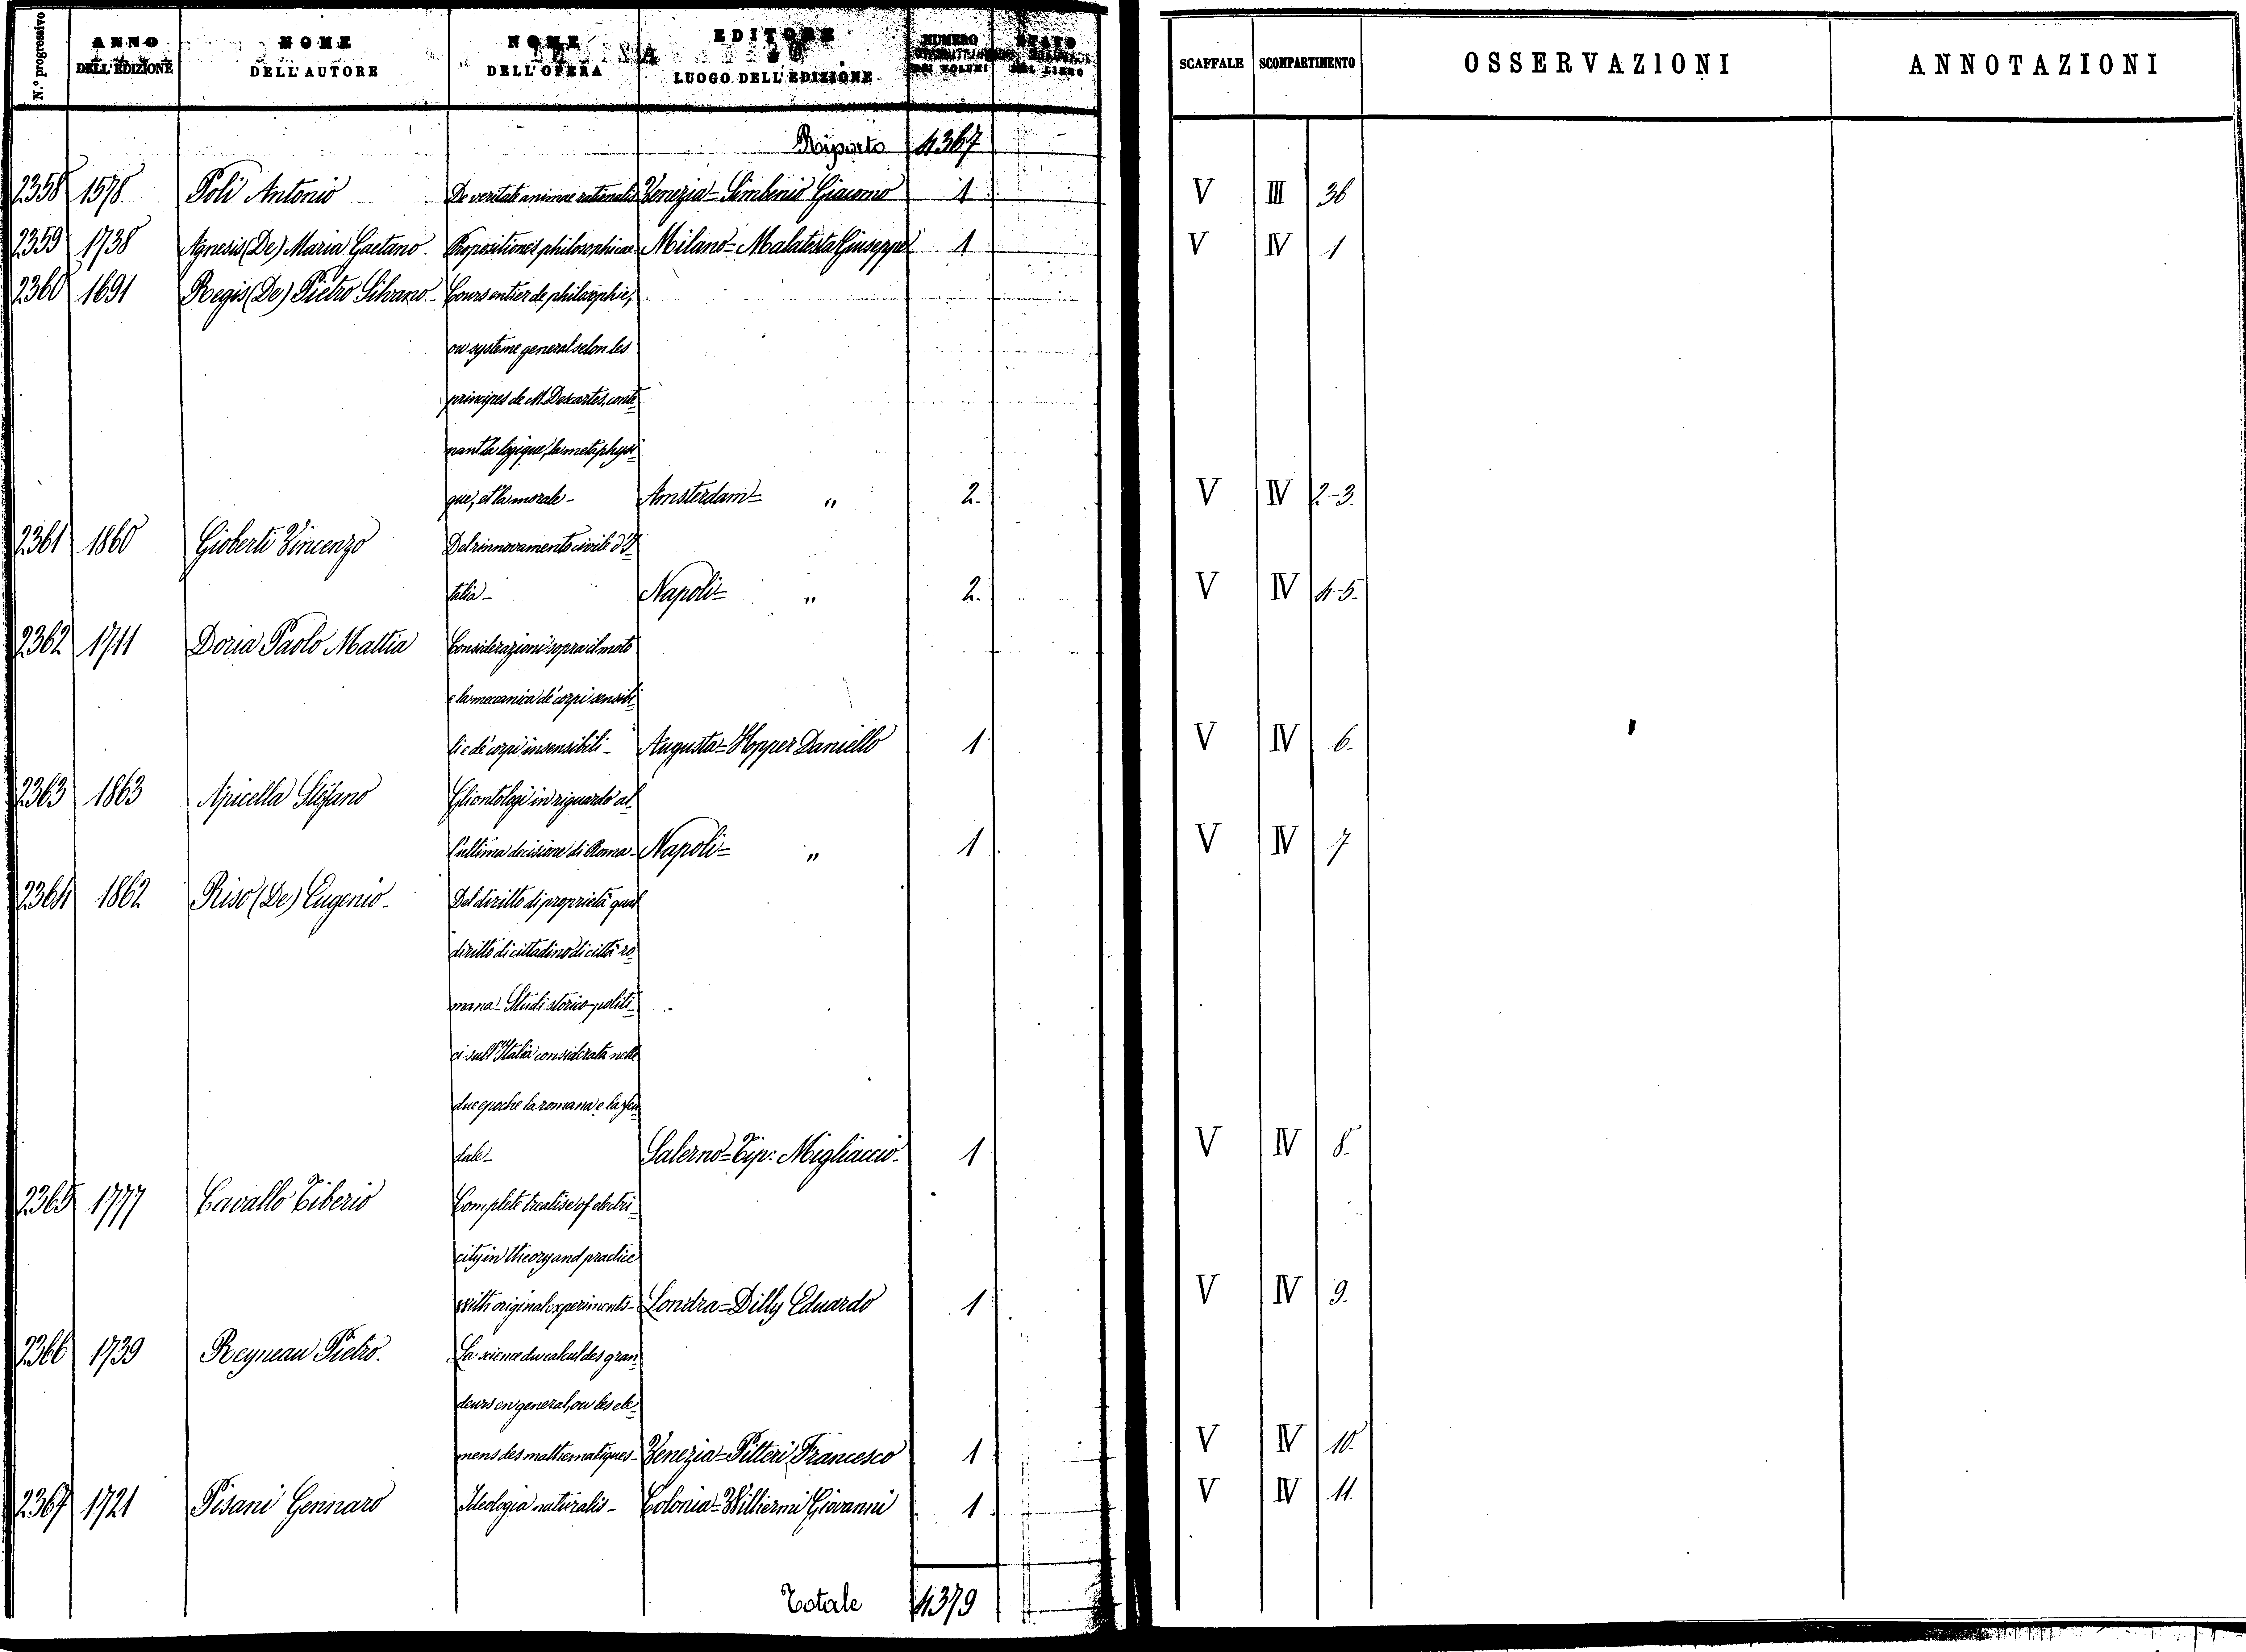 N.º progressivo
ANNO DELL'EDIZIONE
NOME DELL'AUTORE
NOME DELL'OPERA
EDITORE LUOGO DELL'EDIZIONE
NUMERO DEI VOLUMI
STATO DEL LIBRO
SCAFFALE
SCOMPARTIMENTO
OSSERVAZIONI
ANNOTAZIONI
Riporto 4367
2358 1578 Poli Antonio De veritate animae rationalis Venezia - Simbenio Giacomo 1 V III 36
2359 1738 Agnesis (De) Maria Gaetano. Propositiones philosophicae Milano - Malatesta Giuseppe 1 V IV 1
2360 1691 Regis (De) Pietro Silvano - Cours entier de philosophie,
ou systeme general selon les
principes de M. Descartes, conte-
nant la logique, la metaphysi-
que, et la morale - Amsterdam - " 2. V IV 2-3.
2361 1860 Gioberti Vincenzo Del rinnovamento civile d'I-
talia - Napoli - " 2. V IV 4-5.
2362 1711 Doria Paolo Mattia Considerazioni sopra il moto
e la meccanica de' corpi sensibi-
li e de' corpi insensibili - Augusta - Hopper Daniello 1 V IV 6.
2363 1863 Apicella Stefano Gli ontologi in riguardo al-
l'ultima decisione di Roma - Napoli - " 1 V IV 7
2364 1862 Riso (De) Eugenio - Del diritto di proprietà qual
diritto di cittadino di città ro-
mana - Studi storico-politi-
ci sull'Italia considerata nelle
due epoche la romana e la feu-
dale - Salerno - Tip: Migliaccio - 1 V IV 8.
2365 1777 Cavallo Tiberio Complete treatise of electri-
city in theory and practice
with original experiments - Londra - Dilly Eduardo 1 V IV 9.
2366 1739 Reyneau Pietro. La science du calcul des gran-
deurs en general, ou les ele-
mens des mathematiques - Venezia - Pitteri Francesco 1 V IV 10.
2367 1721 Pisani Gennaro Ideologia naturalis - Colonia - Williermi Giovanni 1 V IV 11.
Totale 4379